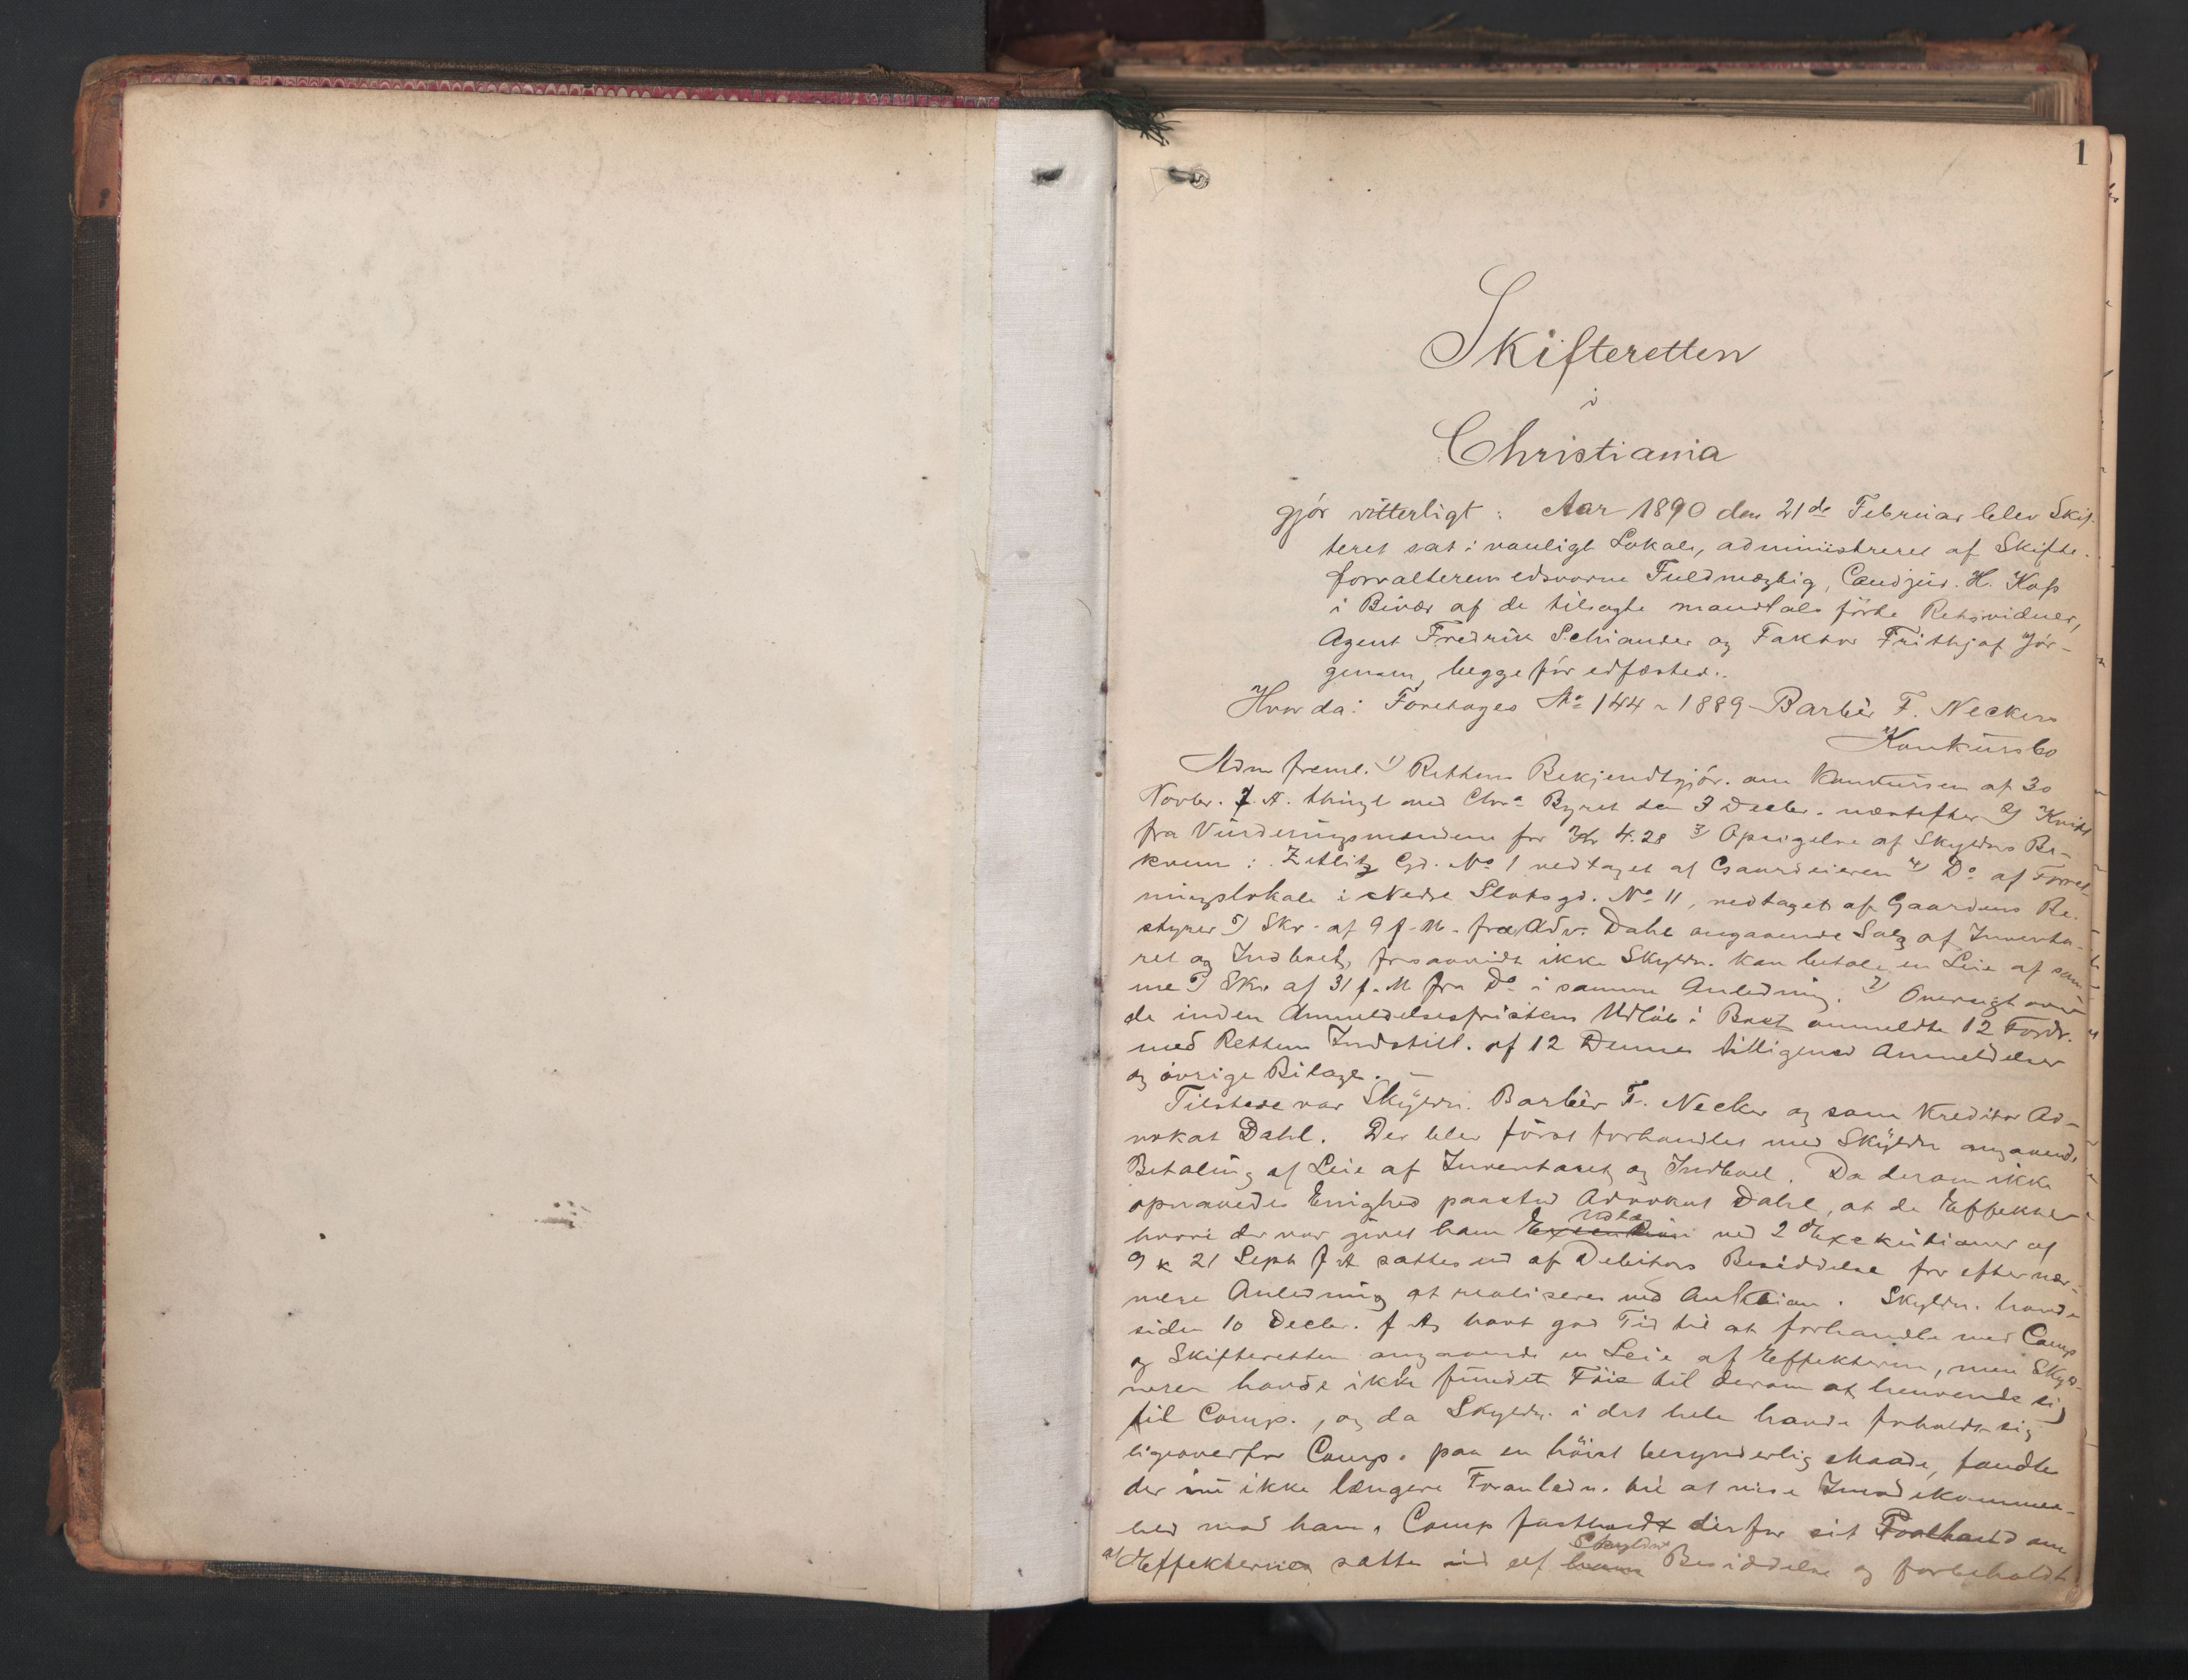 1
Skifteretten
i
Christiania
gjør vitterligt: Aar 1890 den 21de Februar blev Skif-
teret sat i vanligt Lokale, administreret af Skifte-
forvalterens edsvorne Fuldmægtig, Cand jur. H.
i Bivær af de tilsagte mandtalsførte Retsvidner,
Agent Fredrik Schiander og Faktor Frithjof Jör-
gensen, begge før edfæstede.
Hvorda: Foretoges No 144 - 1889 - Barbèr F. Neckers
Konkursbo
Adm freml. 1) Rettens Bekjendtgjør. om Konkursen af 30
Novbr. f. A. thingl ved Chra Byret den 3 Decbr. næstefter 2) Kvitt
fra Vurderingsmændene for Kr 4.28 3) Opsigelse af Skyldrs Be-
kvem: Zetlitz Gd. No 1 vedtaget af Gaardeieren 4) Do af Forret-
ningslokale i Nedre Slotsgd. No 11, vedtaget af Gaardens Be-
styrer 5) Skr. af 9 f. M. fra Adv. Dahl angaaende Salg af Inventa-
ret og Indboet, forsaavidt ikke Skyldn. kan betale en Leie af sam
me 6) Skr af 31 f. M. fra Do i samme Anledning. 7) Oversigt over
de inden Anmeldelsesfristens Udløb i Boet anmeldte 12 Fordr.
med Rettens Indstill. af 12 Dennes tilligemed Anmeldelser
og øvrige Bilage. -
Tilstede var Skyldn. Barbèr F. Necker og som Kreditor Ad-
vokat Dahl. Der blev først forhandlet med Skyldn angaaende
Betaling af Leie af Inventaret og Indboet. Da derom ikke
opnaaedes Enighed paastod Advokat Dahl, at de Effekter
hvori der var givet ham Udlæg ved 2 Exekutioner af
9 & 21 Septb f A sattes ud af Debitors Besiddelse for efter nær-
mere Anledning at realiseres ved Auktion. Skyldn. havde
siden 10 Decbr. f A havt god Tid til at forhandle med Comp
og Skifteretten angaaende en Leie af Effekterne, men Skyld-
neren havde ikke fundet Føie til derom at henvende sig
til Comp., og da Skyldn. i det hele havde forholdt sig
ligeoverfor Comp. paa en höist besynderlig Maade, fandtes
der nu ikke længere Foranledn. til at vise Imødekommen-
hed mod ham. Comp fastholdt derfor sit Forbehold om
at Effekterne sattes ud af Skyldns Besiddelse og forbeholdt